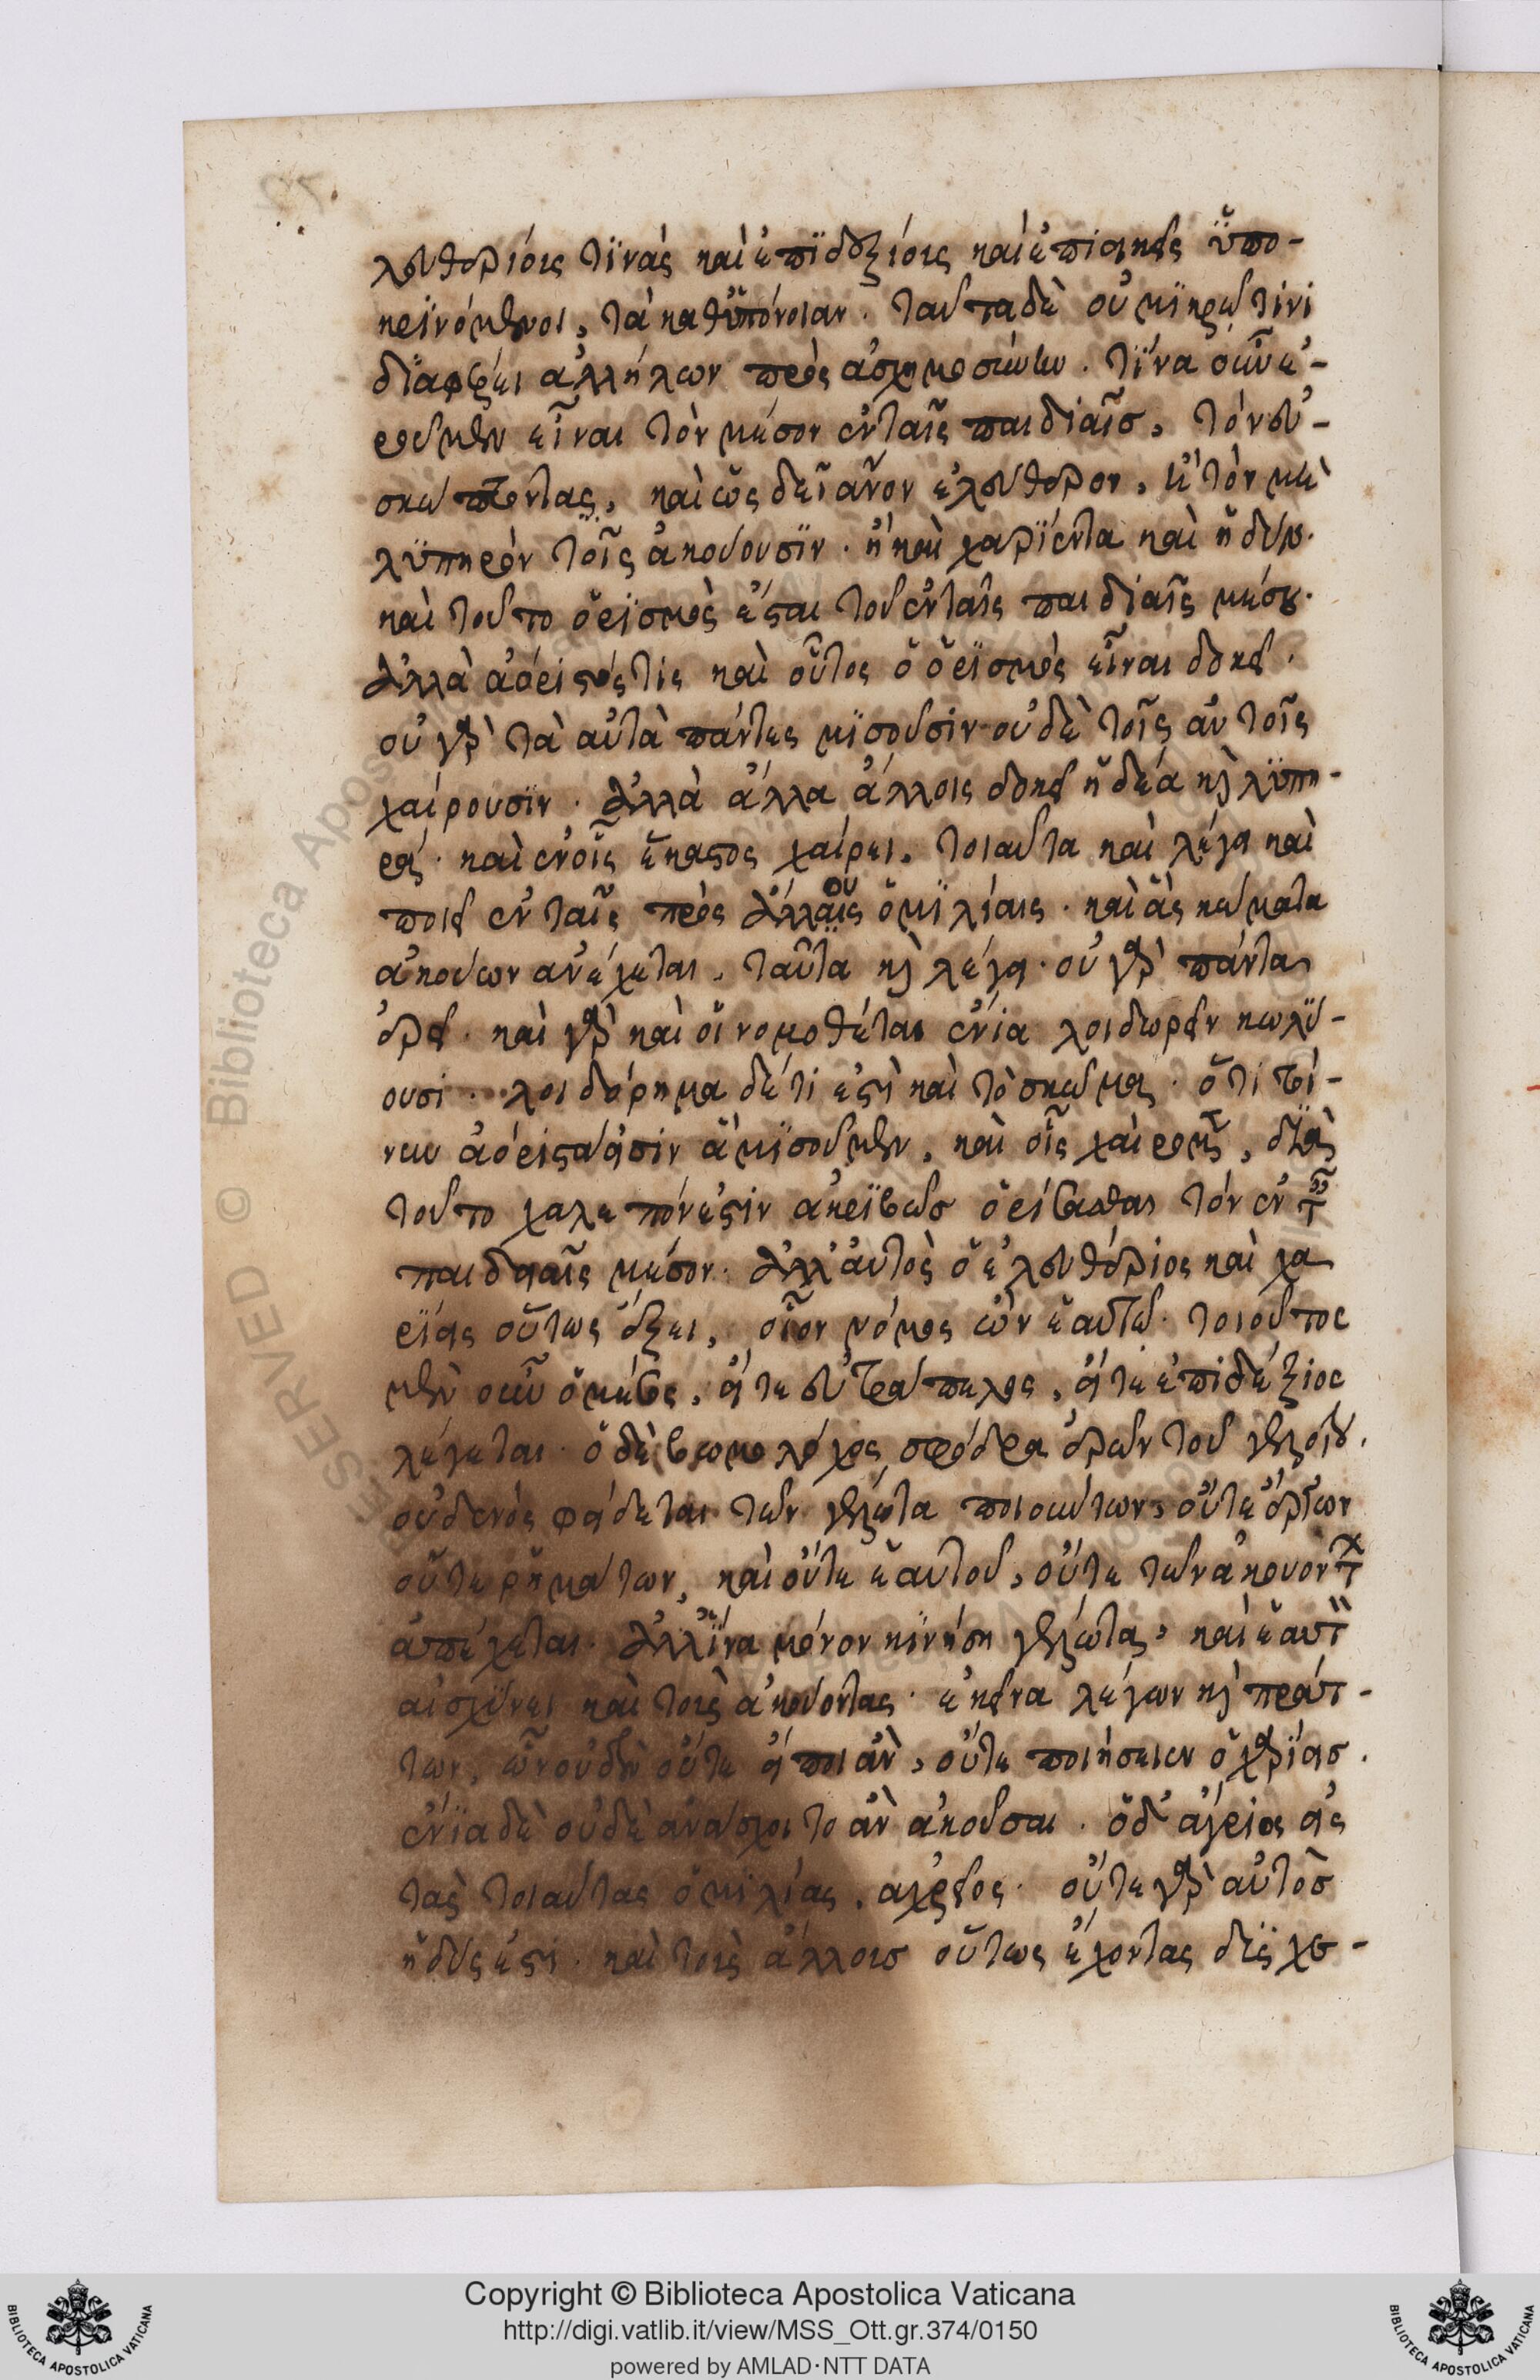 λευθερίοις τϊνὰς καὶ ἐπϊδεξίοις καὶ ἐπιεικεῖς ὑπο-
κρϊνόμενοι, τὰ καθ' ὑπόνοιαν. ταῦτα δὲ οὐ μϊκρῷ τινὶ
δϊαφέρει ἀλλήλων πρὸς ἀσχημοσύνην. τίνα οὖν ἐ-
ροῦμεν εἶναι τὸν μέσον ἐν ταῖς παιδιαῖσ, τὸν εὐ-
σκώπτοντας, καὶ ὡς δεῖ ἄνον ἐλεύθερον, ἢ τὸν μὴ
λϋπηρὸν τοῖς ἀκούουσϊν. ἢ καὶ χαρϊέντα καὶ ἡδύν.
καὶ τοῦτο ὁρϊσμὸς ἔσται τοῦ ἐν ταῖς παιδιαῖς μέσου.
ἀλλὰ ἀόριστός τις καὶ οὗτος ὁ ὁρϊσμὸς εἶναι δοκεῖ.
οὐ γὰρ τὰ αὐτὰ πάντες μϊσοῦσιν οὐδὲ τοῖς αὐτοῖς
χαίρουσϊν. ἀλλὰ ἄλλα ἄλλοις δοκεῖ ἡδέα κὶ λϋπη-
ρά. καὶ ἐν οἷς ἕκαστος χαίρει, τοιαῦτα καὶ λέγει καὶ
ποιεῖ ἐν ταῖς πρὸς ἄλλους ὁμϊλίαις. καὶ ἃ σκώματα
ἀκούων ἀνέχεται, ταῦτα κὶ λέγει. οὐ γὰρ πάντα
ἐρεῖ. καὶ γὰρ καὶ οἱ νομοθέται ἐνία λοιδωρεῖν κωλύ-
ουσι. λοιδόρημα δέ τί ἐστὶ καὶ τὸ σκῶμμα. ὅτι τοί-
νυν ἀόριστά εἰσιν ἃ μϊσοῦμεν, καὶ οἷς χαίρομεν, διὰ
τοῦτο χαλεπόν ἐστιν ἀκρϊβῶσ ὁρίσασθαι τὸν ἐν τ
παιδιαῖς μέσον. ἀλλ' αὐτὸς ὁ ἐλευθέριος καὶ χα
ρίεις οὕτως ἕξει, οἷον νόμος ὢν ἑαυτῷ. τοιοῦτος
μὲν οὖν ὁ μέσος, εἴτε εὐτράπελος, εἴτε ἐπιδέξιος
λέγεται. ὁ δὲ βωμολόχος σφόδρα ἐρῶν τοῦ γελοίου.
οὐδενὸς φείδεται τῶν γέλωτα ποιούντων, οὔτε ἔργων
οὔτε ῥημάτων, καὶ οὔτε ἑαυτοῦ, οὔτε τῶν ἀκουόντ
ἀπέχεται. ἀλλ' ἵνα μόνον κϊνήση γέλωτα, καὶ ἑαυτ
αἰσχύνει καὶ τοὺς ἀκούοντας. ἐκεῖνα λέγων κὶ πράτ-
των, ὧν οὐδὲν οὔτε εἴποι ἂν, οὔτε ποιήσειεν ὁ χαρίεισ.
ἐνϊα δὲ οὐδὲ ἀνάσχοιτο ἂν ἀκοῦσαι. ὁ δ' ἄγριος εἰς
τὰς τοιαύτας ὁμϊλίας, ἀχρεῖος. οὔτε γὰρ αὐτὸσ
ἡδύς ἐστι. καὶ τοὺς ἄλλουσ οὕτως ἔχοντας δυσχε-
Copyright © Biblioteca Apostolica Vaticana
http://digi.vatlib.it/view/MSS_Ott.gr.374/0150
powered by AMLAD·NTT DATA